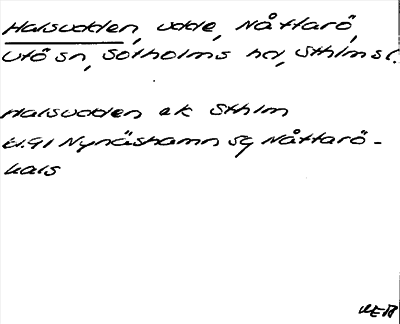 Halsudden, udde, Nåttarö,
Utö sn, Sotholms hd, Sthlms l.
Halsudden ek Sthlm
61.91 Nynäshamn sq Nåttarö-
hals